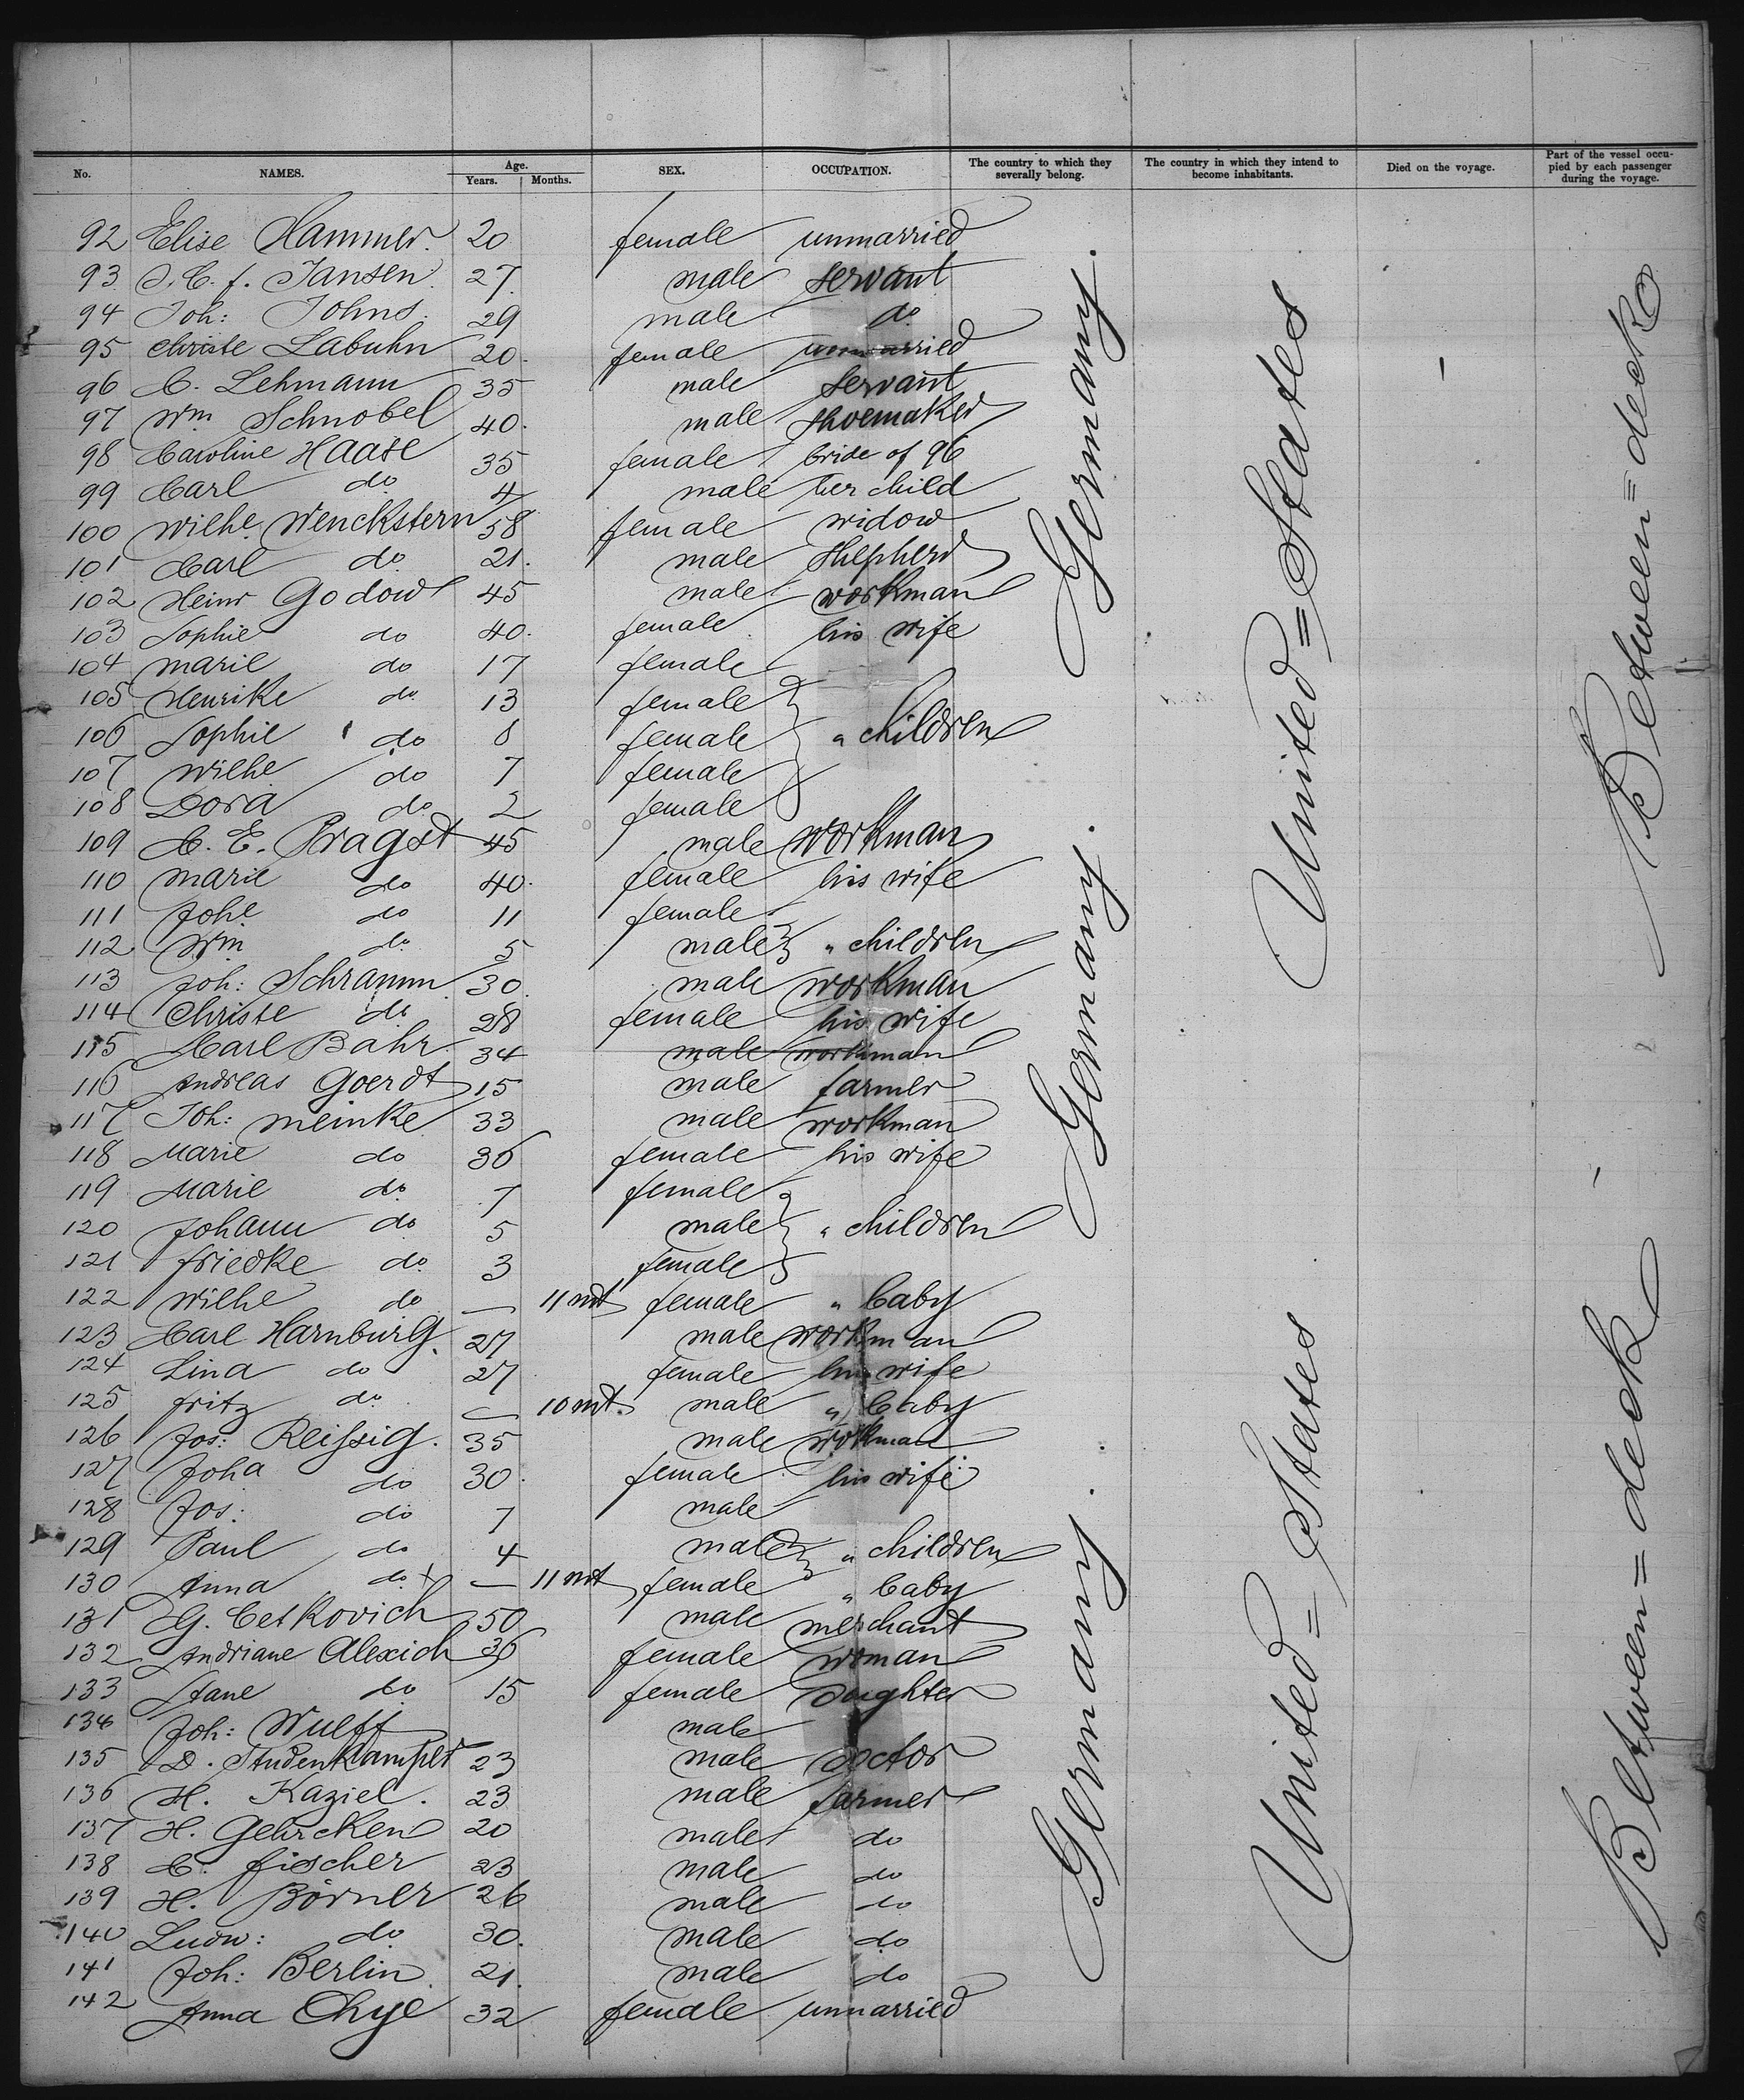 No. NAMES. Age. Years. Months. SEX. OCCUPATION. The country to which they severally belong. The country in which they intend to become inhabitants. Died on the voyage. Part of the vessel occupied by each passenger during the voyage.
92 Elise Hammer. 20 female unmarried
93 J. C. f. Jansen. 27. male servant
94 Joh: Johns. 29 male do
95 Christe Labuhn 20. female unmarried
96 C. Lehmann 35 male servant
97 Wm Schnobel 40. male shoemaker
98 Caroline Haase 35 female bride of 96
99 Carl do 4 male her child
100 Wilhe. Wenckstern 58 female widow
101 Carl do 21. male shepherd
102 Heinr Godow 45 male workman
103 Sophie do 40. female his wife
104 Marie do 17 female
105 Henrike do 13 female
106 Sophie do 8 female " children
107 Wilhe do 7 female
108 Dora do 2 female
109 C. E. Pragst 45 male workman
110 Marie do 40. female his wife
111 Johe do 11 female
112 Wm do 5 male " children
113 Joh: Schramm 30. male workman
114 Christe do 28 female his wife
115 Carl Bahr 34 male workman
116 Andreas Goerdt 15 male farmer
117 Joh: Meinke 33 male workman
118 Marie do 36 female his wife
119 Marie do 7 female
120 Johann do 5 male " children
121 friedke do 3 female
122 Wilhe do — 11 mt female " baby
123 Carl Harnburg. 27 male workman
124 Lina do 27 female his wife
125 fritz do — 10 mt. male " baby
126 Jos: Reissig. 35 male workman
127 Joha do 30. female his wife
128 Jos: do 7 male
129 Paul do 4 male " children
130 Anna do + — 11 mt female " baby
131 G. Cetkovich 50 male merchant
132 Andriane Alexich 36 female woman
133 Stane do 15 female Daughter
134 Joh: Wulff male
135 D. Studenkamper 23 male Doctor
136 H. Kaziel. 23 male farmer
137 H. Gehrcken 20 male do
138 C. fischer 23 male do
139 H. Börner 26 male do
140 Ludw: do 30. male do
141 Joh: Berlin. 21. male do
142 Anna Chye 32 female unmarried
Germany.
Germany.
Germany.
United = States
United = States
Between = deck
Between = deck